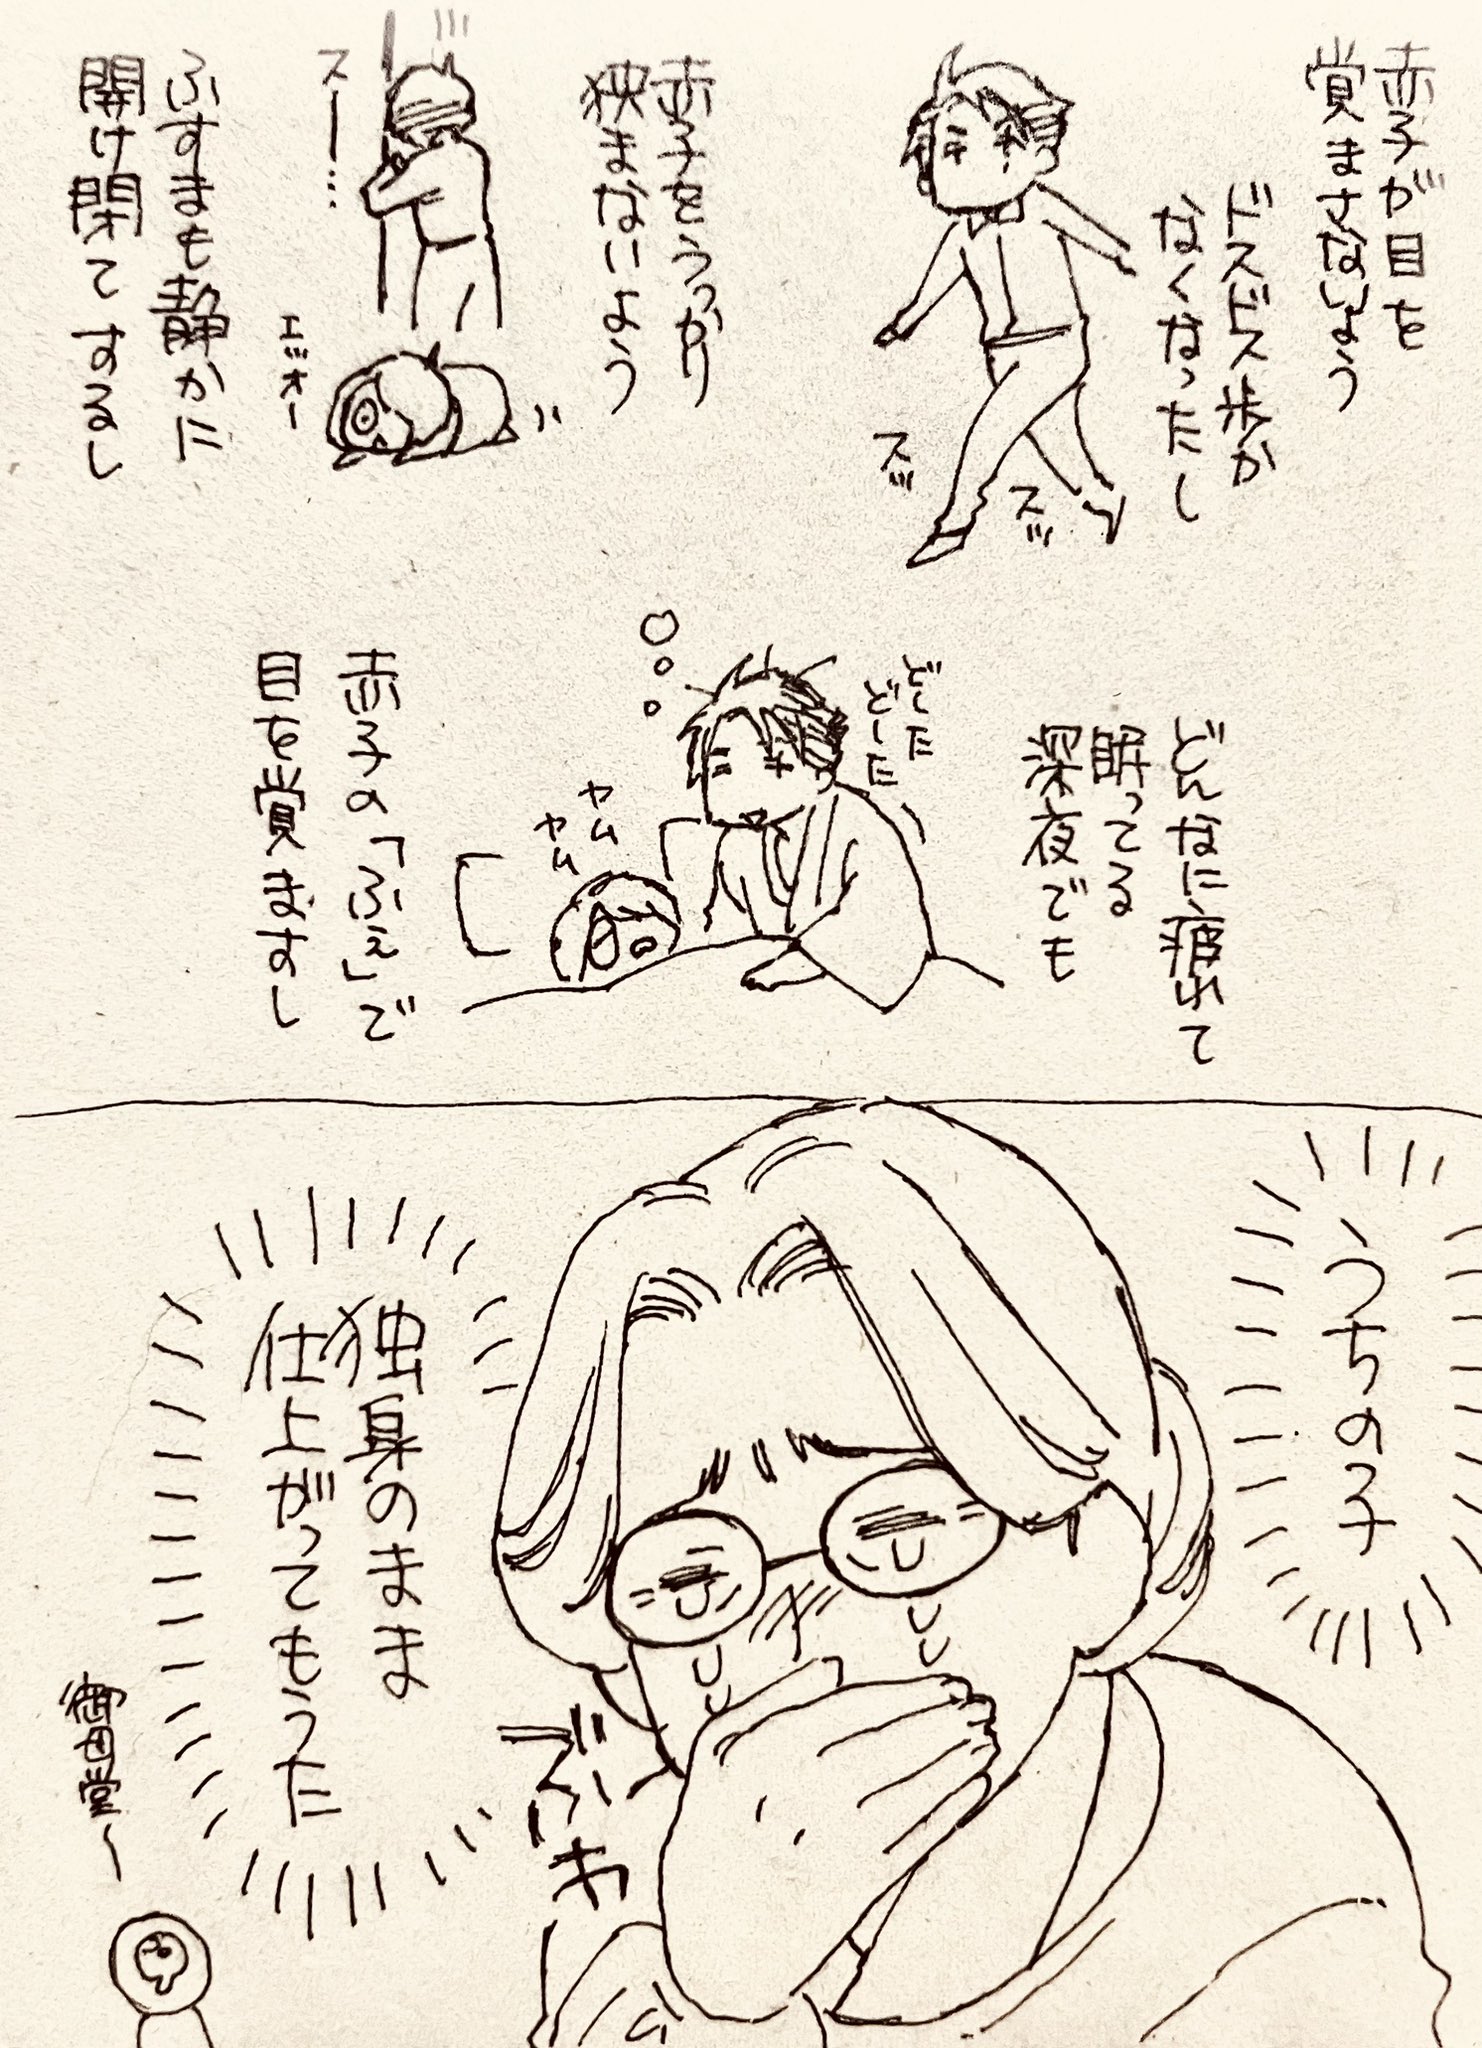 赤子が目を
覚まさないよう
ドスドス歩か
なくなったし
ズッ
ズッ
赤子をうっかり
狭まないよう
スー…
エッオー
ふすまも静かに
開け閉てするし
どんなに疲れて
眠ってる
深夜でも
どした
どーした
ヤム
ヤム
赤子の「ふぇ」で
目を覚ますし
うちの子
ぶわ
独身のまま
仕上がってもうた
御母堂〜